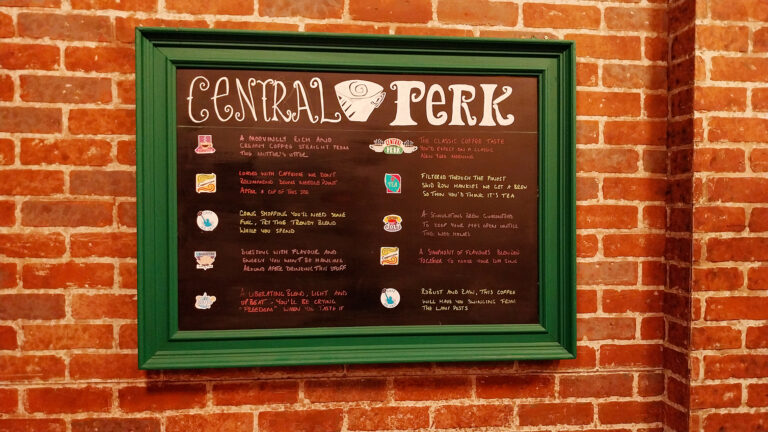 CENTRAL PERK
A MOOVINGLY RICH AND
CREAMY COFFEE STRAIGHT FROM
THE NUTTER'S UTTER
LOADED WITH CAFFEINE WE DON'T
RECOMMEND DOING NEEDLE POINT
AFTER A CUP OF THIS JOE
GOING SHOPPING YOU'LL NEED SOME
FUEL, TRY THIS TRENDY BLEND
WHILE YOU SPEND
BURSTING WITH FLAVOUR AND
ENERGY YOU WON'T BE HANGING
AROUND AFTER DRINKING THIS STUFF
A LIBERATING BLEND, LIGHT AND
UPBEAT - YOU'LL BE CRYING
"FREEDOM" WHEN YOU TASTE IT
CENTRAL
PERK
THE CLASSIC COFFEE TASTE
YOU'D EXPECT ON A CLASSIC
NEW YORK MORNING
TEA
FILTERED THROUGH THE FINEST
SKID ROW HANKIES WE GET A BREW
SO THEN YOU'D THINK IT'S TEA
A STIMULATING BREW GUARANTEED
TO KEEP YOUR EYES OPEN UNTILL
THE WEE HOURS
A SYMPHONY OF FLAVOURS BLENDED
TOGETHER TO MAKE YOUR SING
ROBUST AND RAW, THIS COFFEE
WILL HAVE YOU SWINGING FROM
THE LAMP POSTS